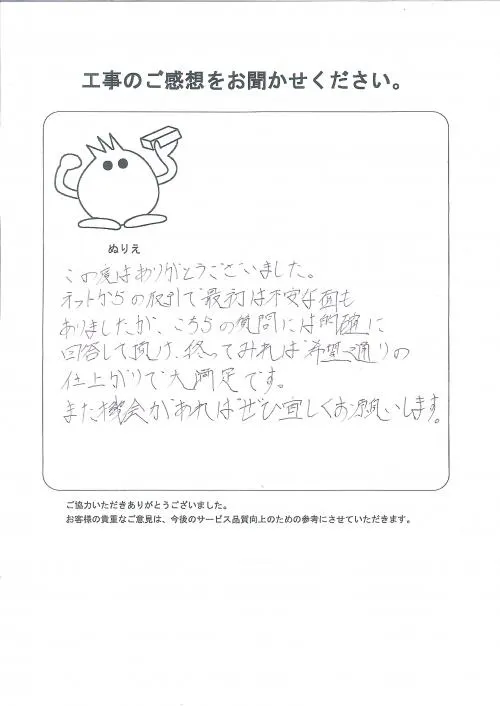 工事のご感想をお聞かせください。
ぬりえ
この度はありがとうございました。
ネットからの取引で最初は不安な面も
ありましたが、こちらの質問には的確に
回答して頂け、終ってみれば希望通りの
仕上がりで大満足です。
また機会があればぜひ宜しくお願いします。
ご協力いただきありがとうございました。
お客様の貴重なご意見は、今後のサービス品質向上のための参考にさせていただきます。